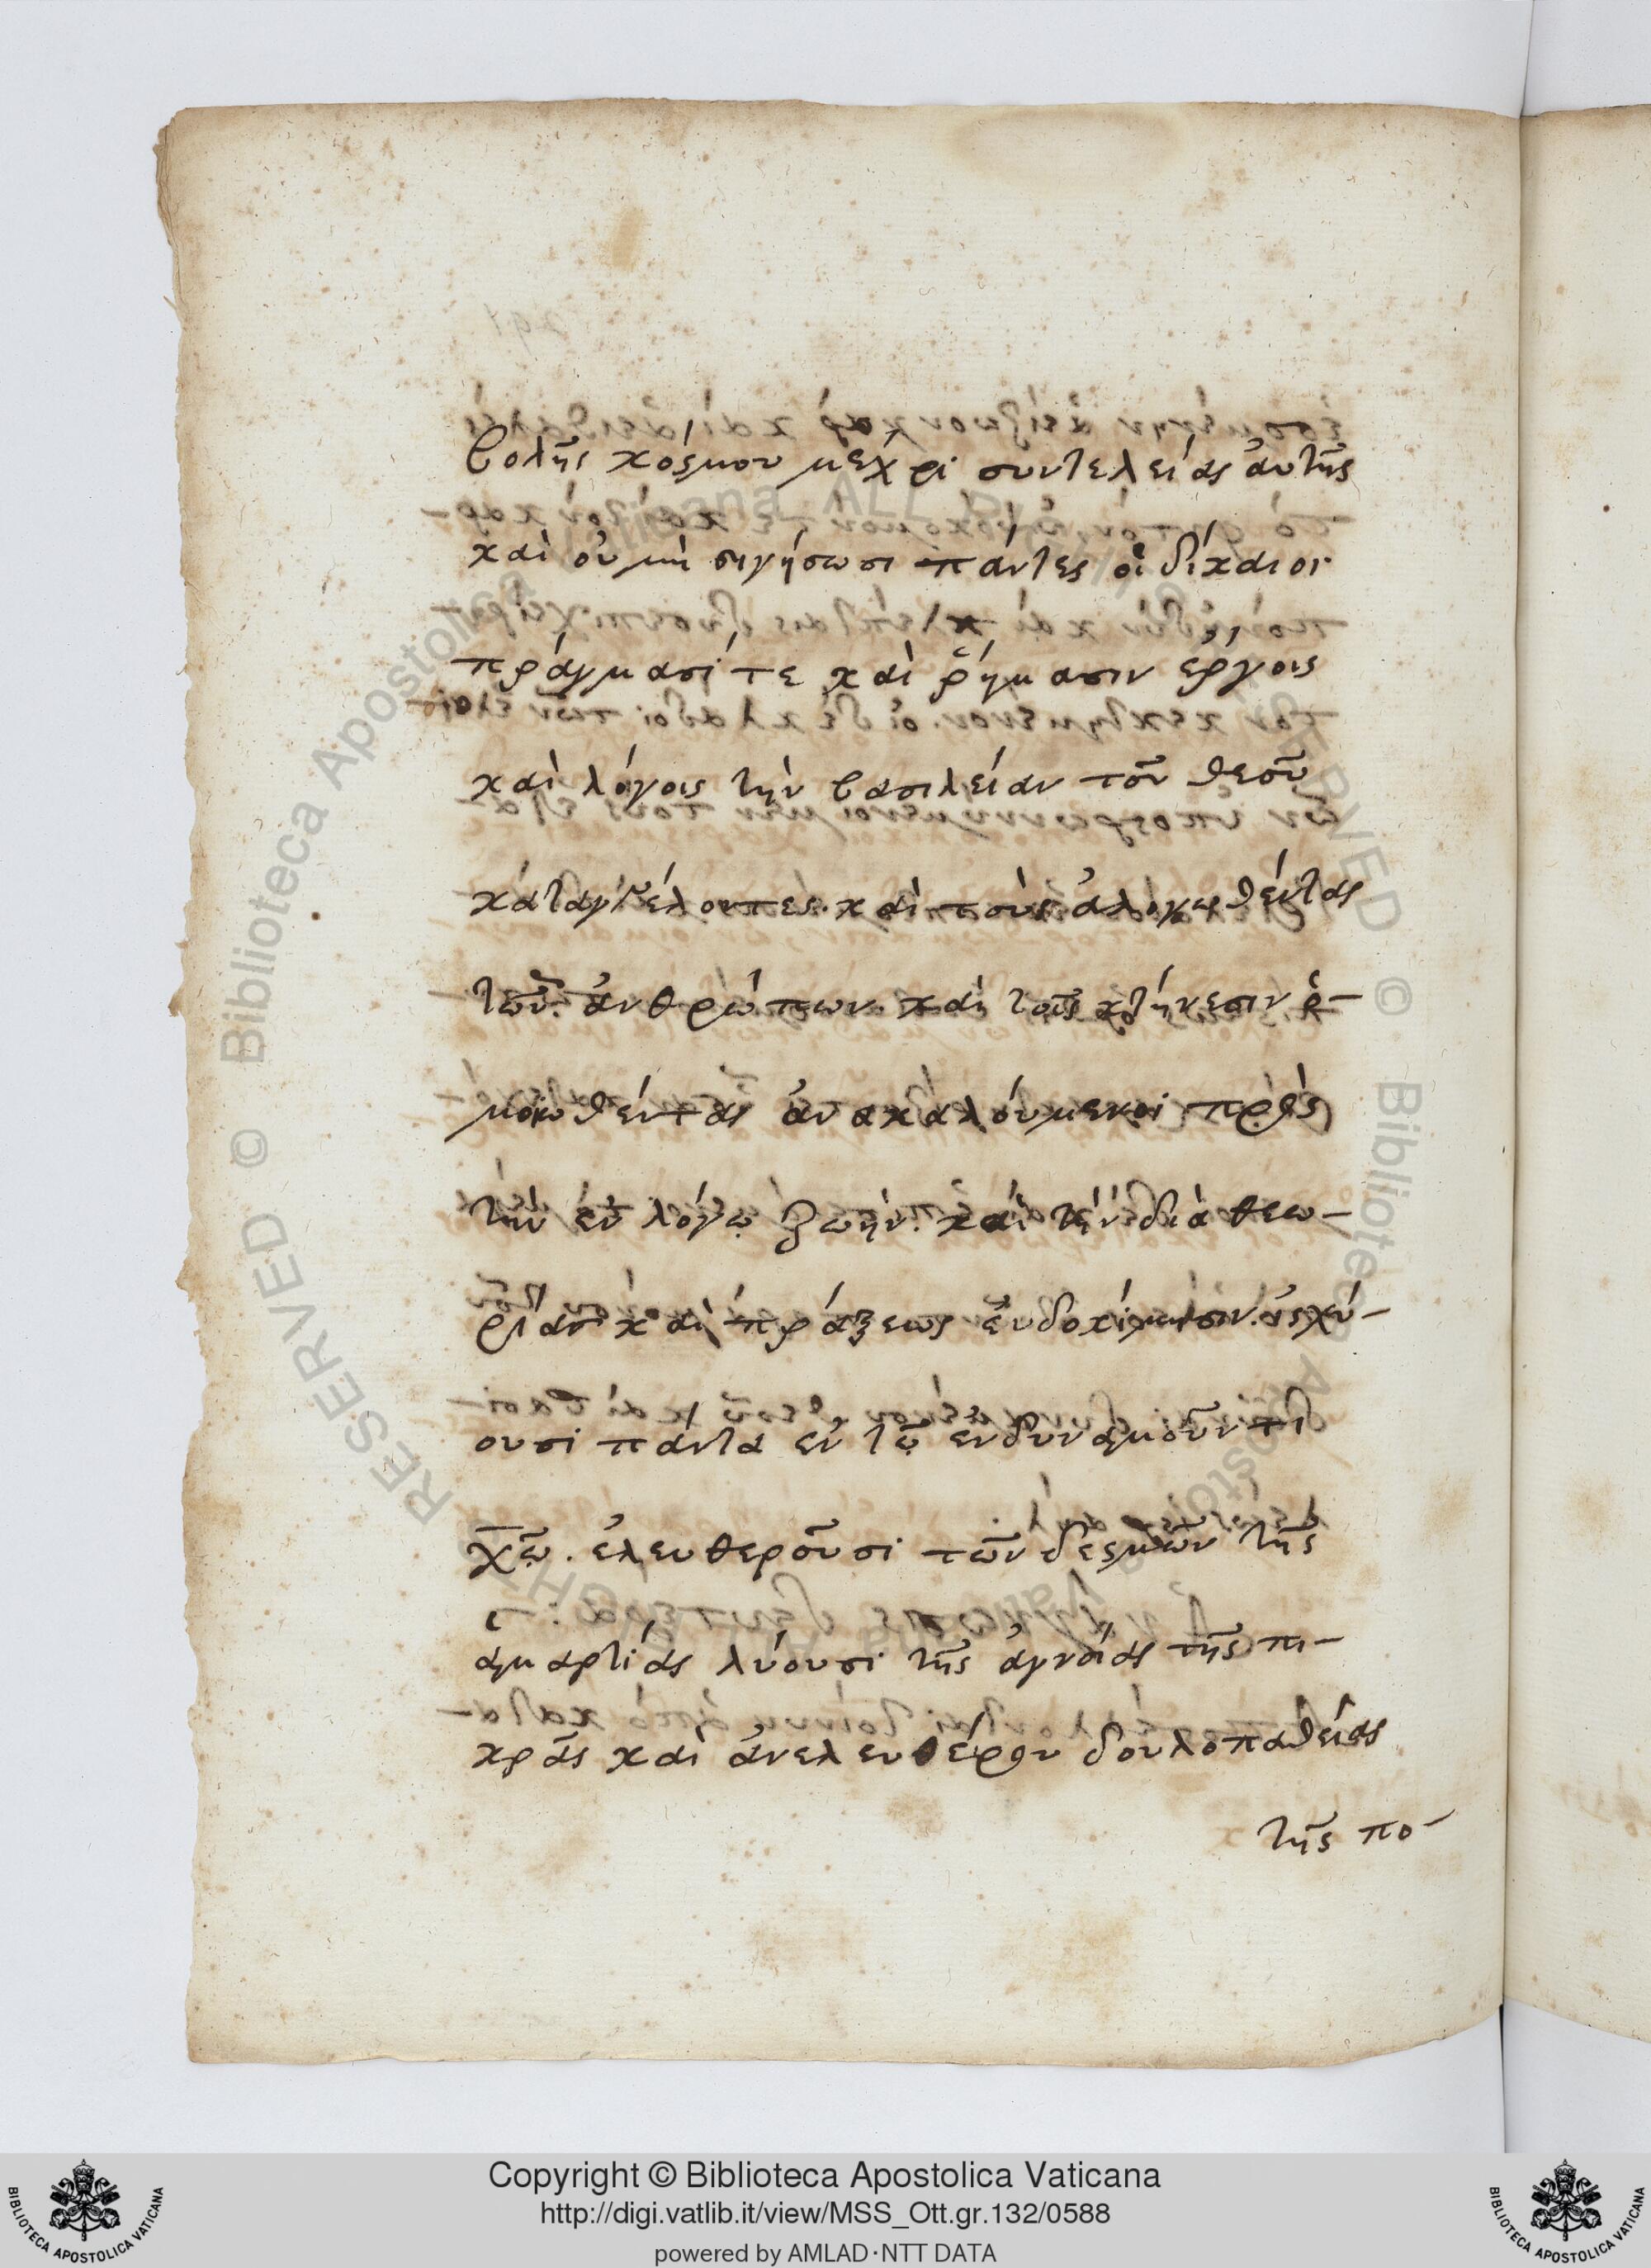 βολῆς κοσμου μέχρι συντελείας ἀυτῆς
καὶ οὐ μὴ σιγήσωσι πάντες οἱ δίκαιοι
πράγμασί τε καὶ ῥήμασιν ἔργοις
καὶ λόγοις τὴν βασιλείαν τοῦ θεοῦ
κάταγγέλοντες. καὶ τοὺς ἀλογωθέντας
τῶν ἀνθρώπων καὶ τοῖς κτήνεσιν ὁ-
μοιωθέντας ἀνακαλόυμενοι πρὸς
τὴν ἐν λόγῳ ζωὴν. καὶ τὴν διὰ θεω-
ρίας καὶ πράξεως ἐυδοκίμησιν. ἰσχύ-
ουσι πάντα ἐν τῷ ἐνδυναμοῦντι
χῷ. ἐλευθεροῦσι τῶν δεσμῶν τῆς
ἁμαρτίας λύουσι τῆς ἀγνοίας τῆς πι-
κρᾶς καὶ ἀνελευθέρου δουλοπαθείας
τῆς πο-
Copyright © Biblioteca Apostolica Vaticana
http://digi.vatlib.it/view/MSS_Ott.gr.132/0588
powered by AMLAD·NTT DATA
BIBLIOTECA APOSTOLICA VATICANA
BIBLIOTECA APOSTOLICA VATICANA